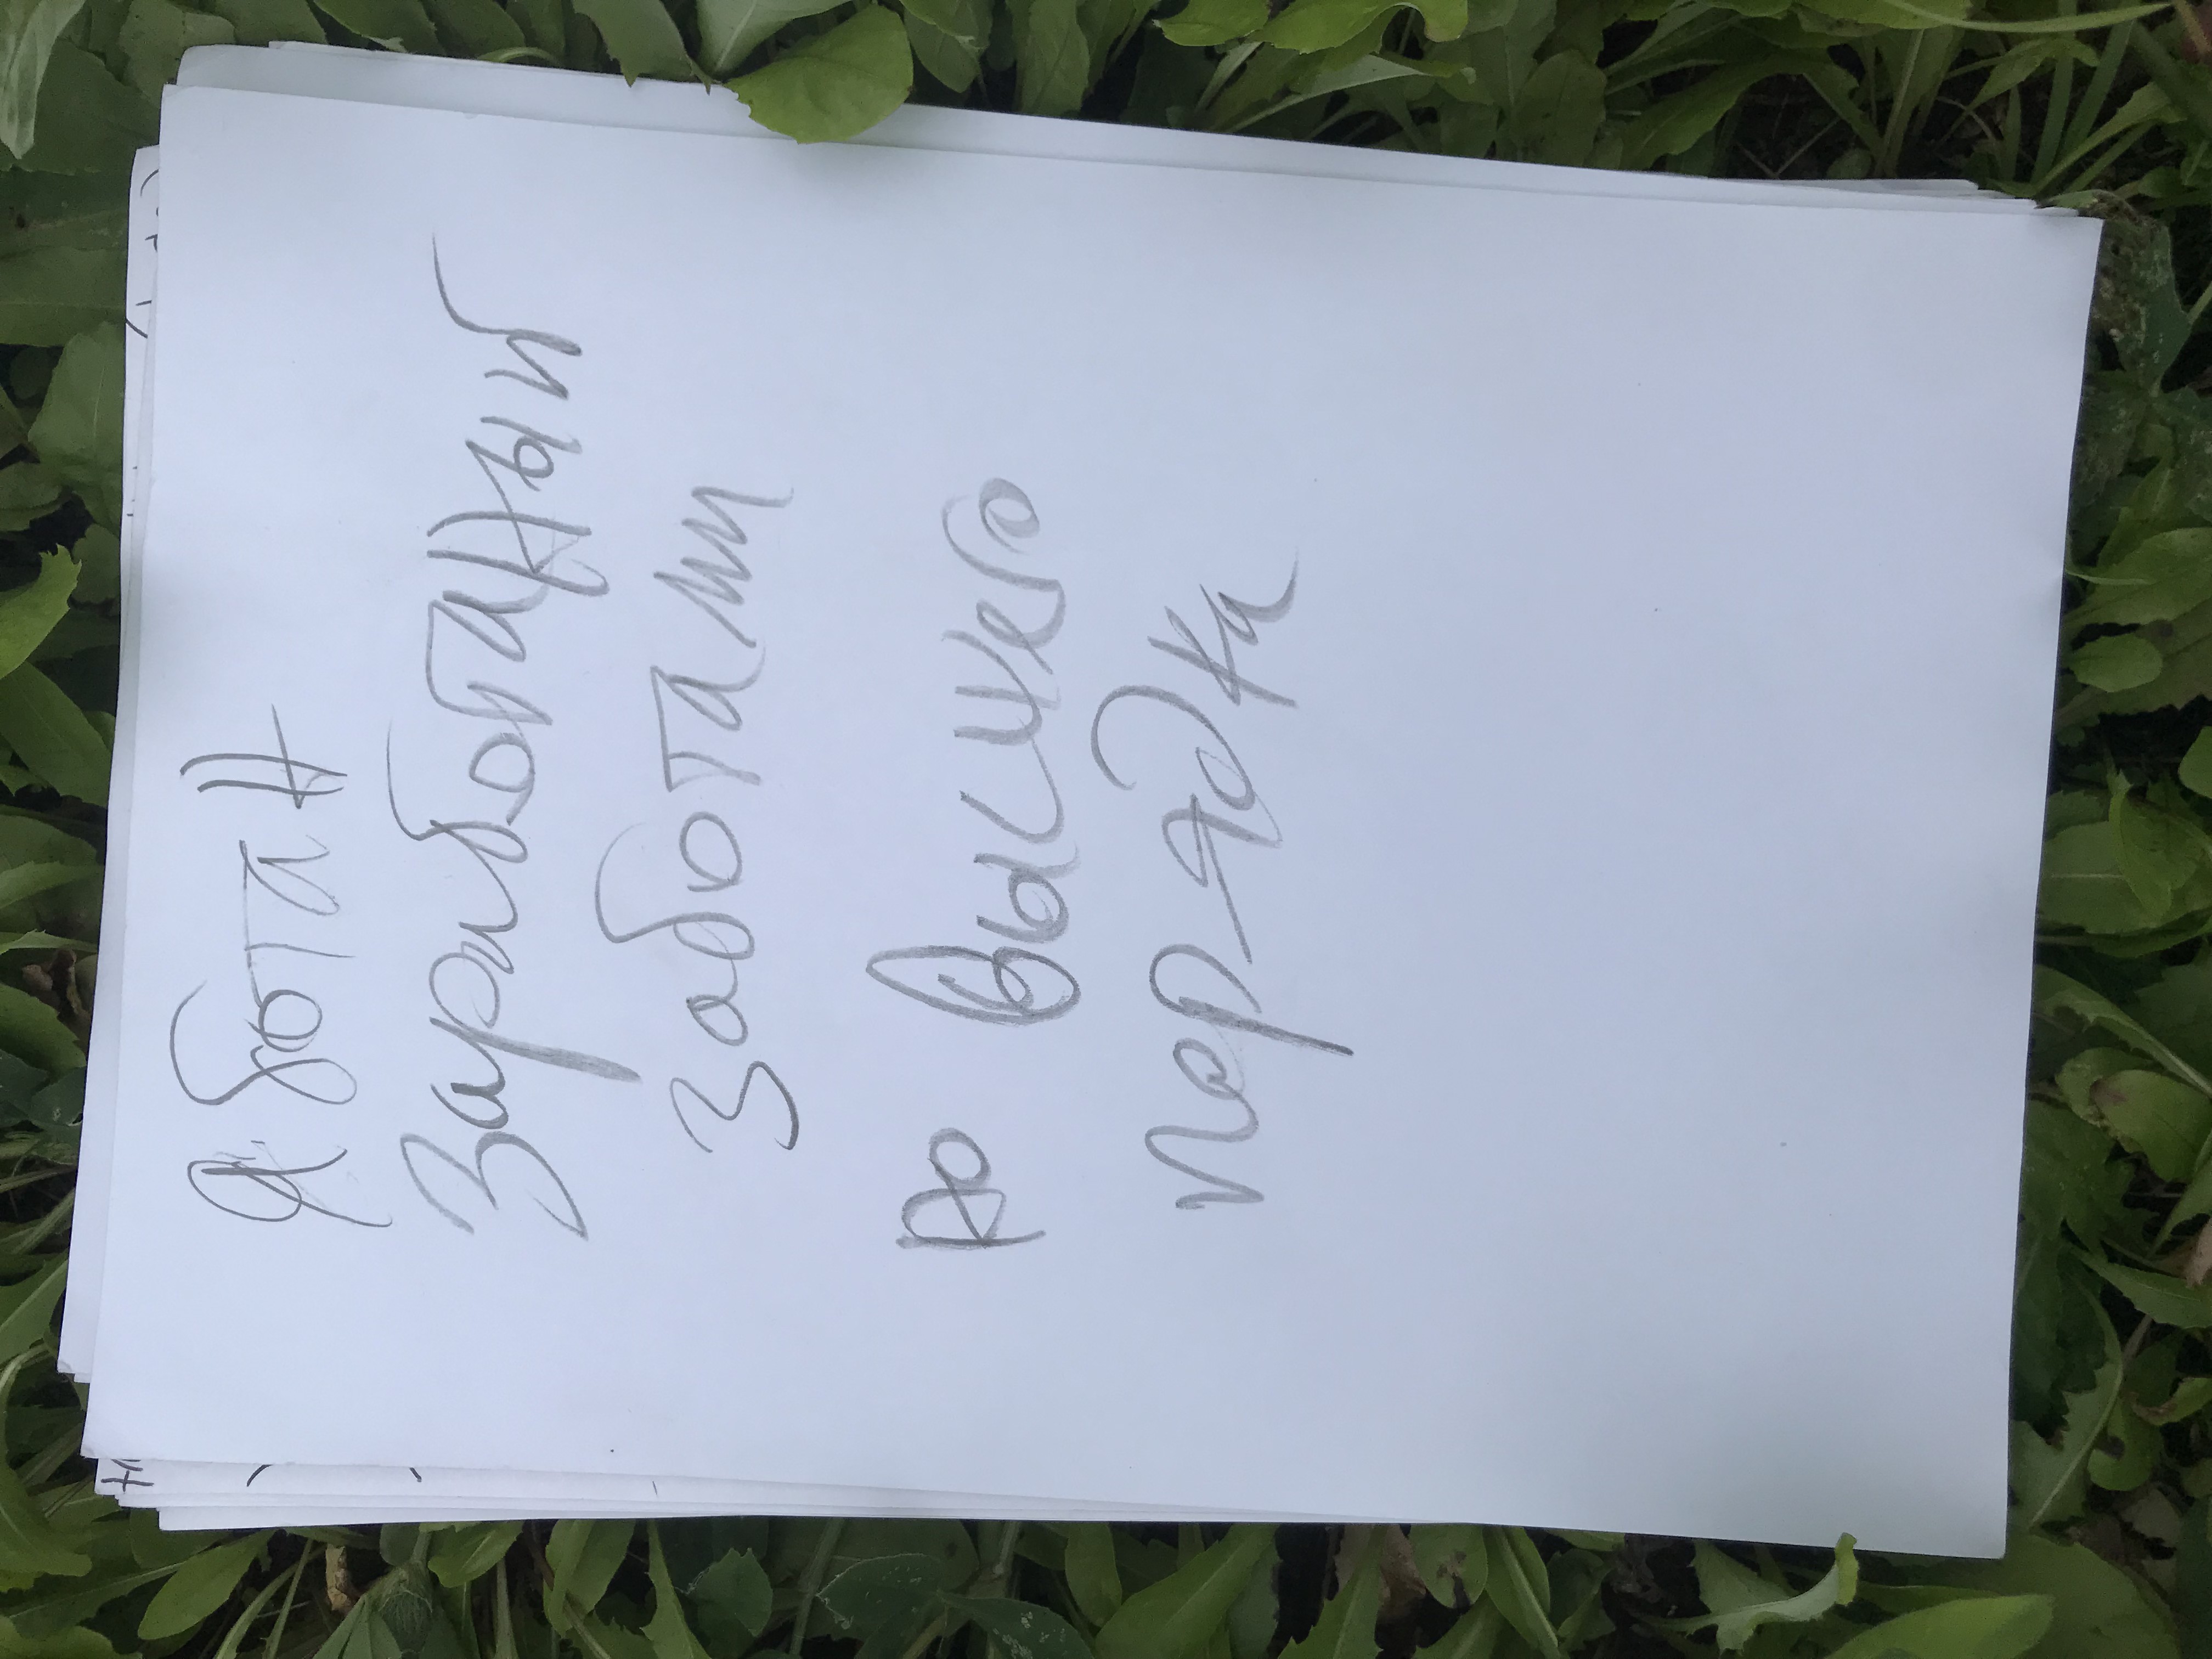 Я ботан
заработаный
заботами
до высшего
порядка